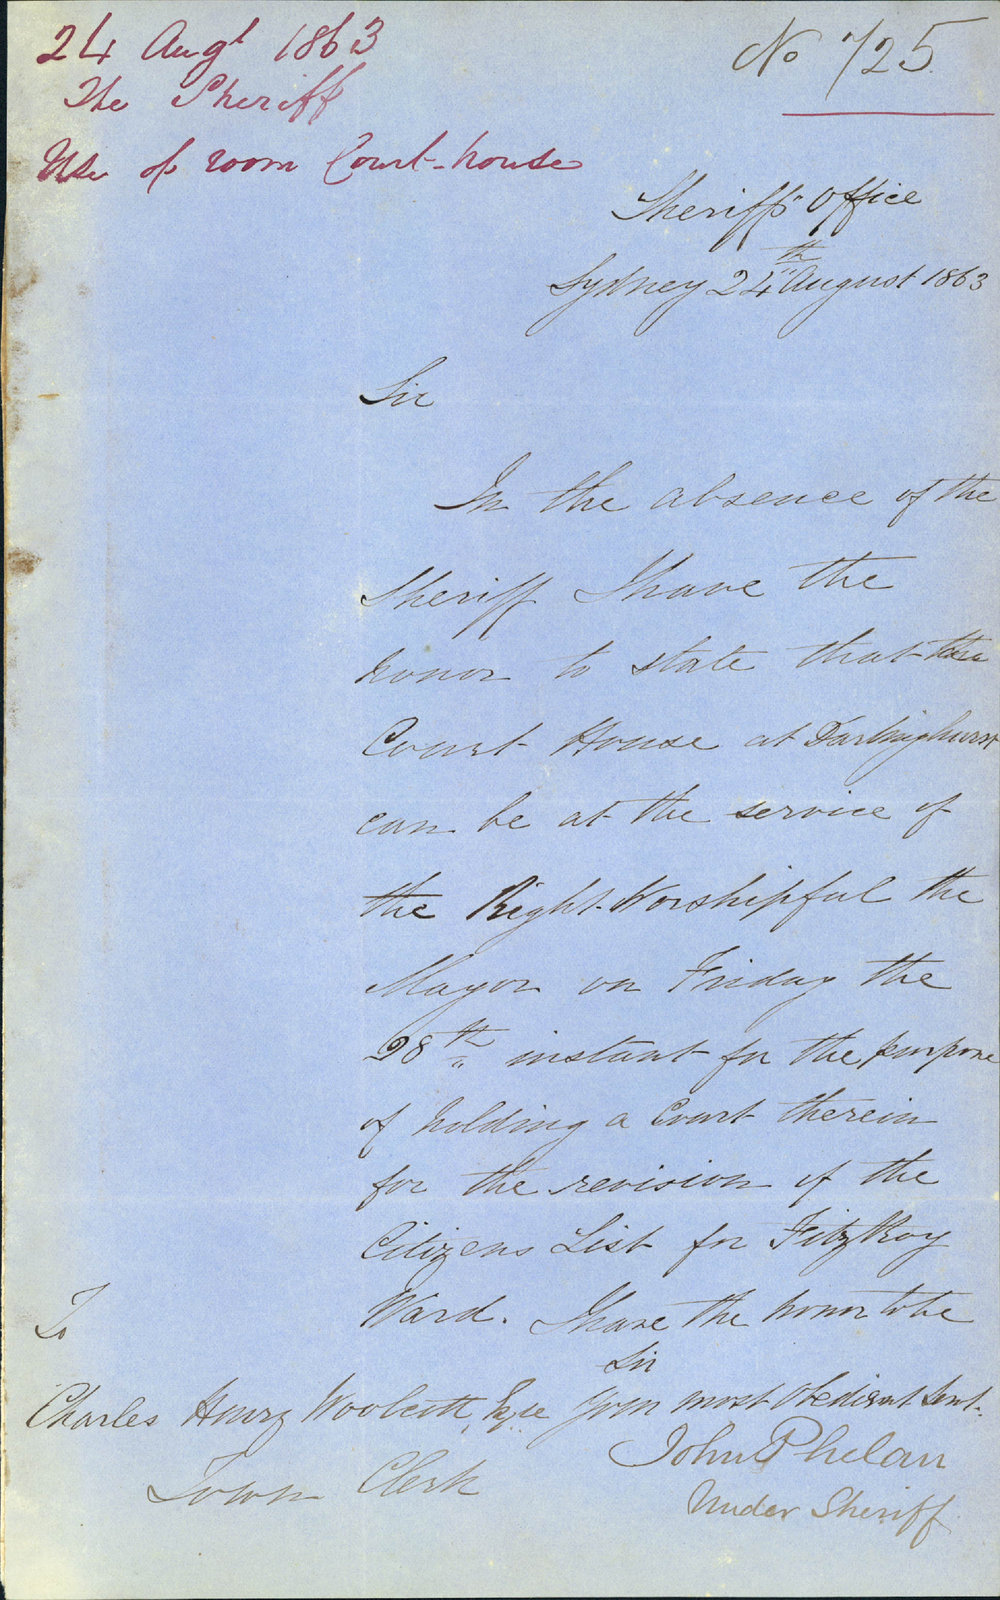 24 Augt 1863
The Sheriff
Use of room Court-house
No 725
Sheriff's Office
Sydney 24th August 1863
Sir
In the absence of the
Sheriff I have the
honor to state that the
Court House at Darlinghurst
can be at the service of
the Right Worshipful the
Mayor on Friday the
28th instant for the purpose
of holding a Court therein
for the revision of the
Citizens List for FitzRoy
Ward. I have the honor to be
Sir
Your most obedient Servt.
John Phelan
Under Sheriff
To
Charles Henry Woolcott Esqre
Town Clerk